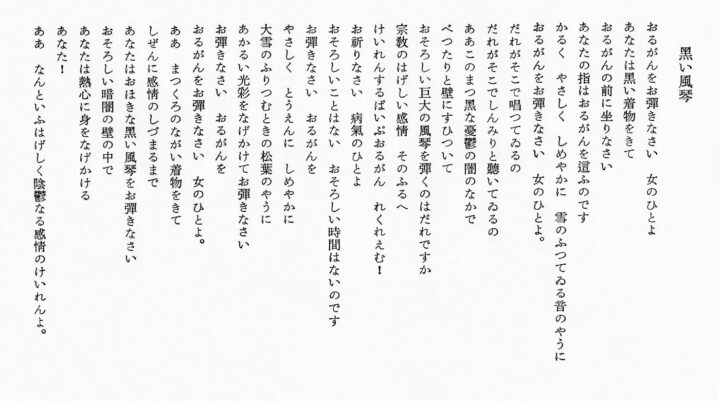 黒い風琴
おるがんをお彈きなさい　女のひとよ
あなたは黒い着物をきて
おるがんの前に坐りなさい
あなたの指はおるがんを這ふのです
かるく　やさしく　しめやかに　雪のふつてゐる音のやうに
おるがんをお彈きなさい　女のひとよ。
だれがそこで唱つてゐるの
だれがそこでしんみりと聽いてゐるの
ああこのまつ黒な憂鬱の闇のなかで
べつたりと壁にすひついて
おそろしい巨大の風琴を彈くのはだれですか
宗教のはげしい感情　そのふるへ
けいれんするぱいぷおるがん　れくれえむ！
お祈りなさい　病氣のひとよ
おそろしいことはない　おそろしい時間はないのです
お彈きなさい　おるがんを
やさしく　とうえんに　しめやかに
大雪のふりつむときの松葉のやうに
あかるい光彩をなげかけてお彈きなさい
お彈きなさい　おるがんを
おるがんをお彈きなさい　女のひとよ。
ああ　まつくろのながい着物をきて
しぜんに感情のしづまるまで
あなたはおほきな黒い風琴をお彈きなさい
おそろしい暗闇の壁の中で
あなたは熱心に身をなげかける
あなた！
ああ　なんといふはげしく陰鬱なる感情のけいれんよ。